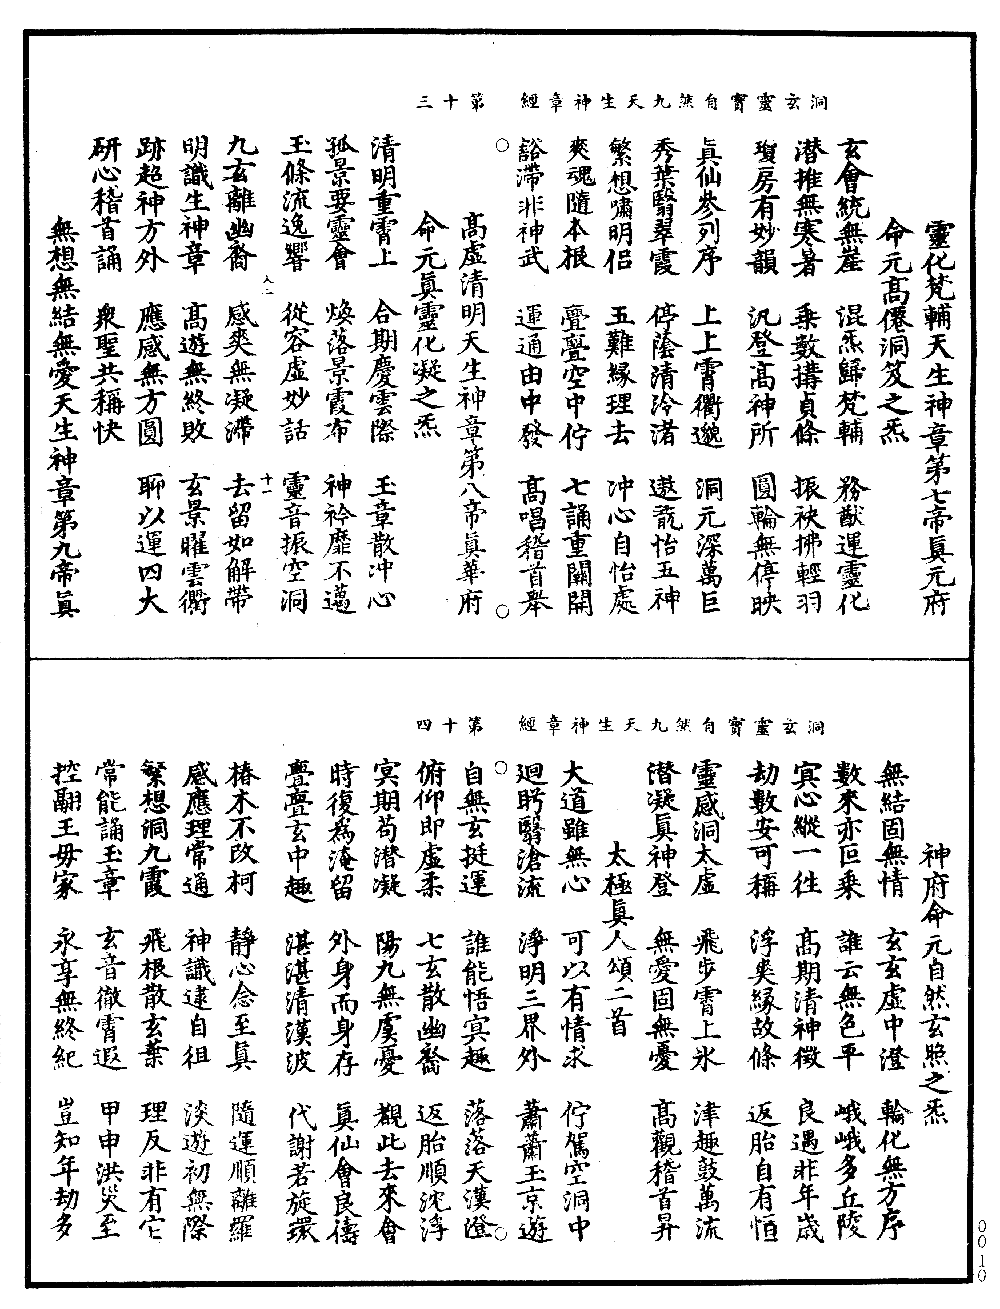 洞玄靈寶自然九天生神章經　第十三
靈化梵輔天生神章第七帝眞元府
命元高僊洞笈之炁
玄會統無崖　混炁歸梵輔　務猷運靈化
潜推無寒暑　乘數搆貞條　振袂拂輕羽
瓊房有妙韻　汎登高神所　圓輪無停映
眞仙參列序　上上霄衢邈　洞元深萬巨
秀葉翳翠霞　停蔭清泠渚　遨翫怡五神
繁想嘯明侣　五難緣理去　冲心自怡處
爽魂隨本根　亹亹空中佇　七誦重關開
豁滯非神武　運通由中發　高唱稽首舉
高虛清明天生神章第八帝眞華府
命元眞靈化凝之炁
清明重霄上　合期慶雲際　玉章散冲心
孤景要靈會　煥落景霞布　神衿靡不邁
玉條流逸響　從容虛妙話　靈音振空洞
九玄離幽裔　感爽無凝滯　去留如解帶
明識生神章　高遊無終敗　玄景曜雲衢
跡超神方外　應感無方圓　聊以運四大
研心稽首誦　衆聖共稱快
無想無結無愛天生神章第九帝眞
人二　十一
洞玄靈寶自然九天生神章經　第十四
神府命元自然玄照之炁
無結固無情　玄玄虛中澄　輪化無方序
數來亦叵乘　誰云無色平　峨峨多丘陵
寘心縱一往　高期清神徵　良遇非年歲
劫數安可稱　浮爽緣故條　返胎自有恒
靈感洞太虛　飛步霄上冰　津趣鼓萬流
潜凝眞神登　無愛固無憂　高觀稽首昇
太極眞人頌二首
大道雖無心　可以有情求　佇駕空洞中
迴眄翳滄流　淨明三界外　蕭蕭玉京遊
自無玄挺運　誰能悟寘趣　落落天漢澄
俯仰即虛柔　七玄散幽裔　返胎順沈浮
寘期苟潜凝　陽九無虞憂　覩此去來會
時復爲淹留　外身而身存　眞仙會良儔
亹亹玄中趣　湛湛清漢波　代謝若旋環
椿木不改柯　靜心念至眞　隨運順離羅
感應理常通　神識逮自徂　淡遊初無際
繁想洞九霞　飛根散玄葉　理反非有它
常能誦玉章　玄音徹霄遐　甲申洪災至
控翮王母家　永享無終紀　豈知年劫多
0010